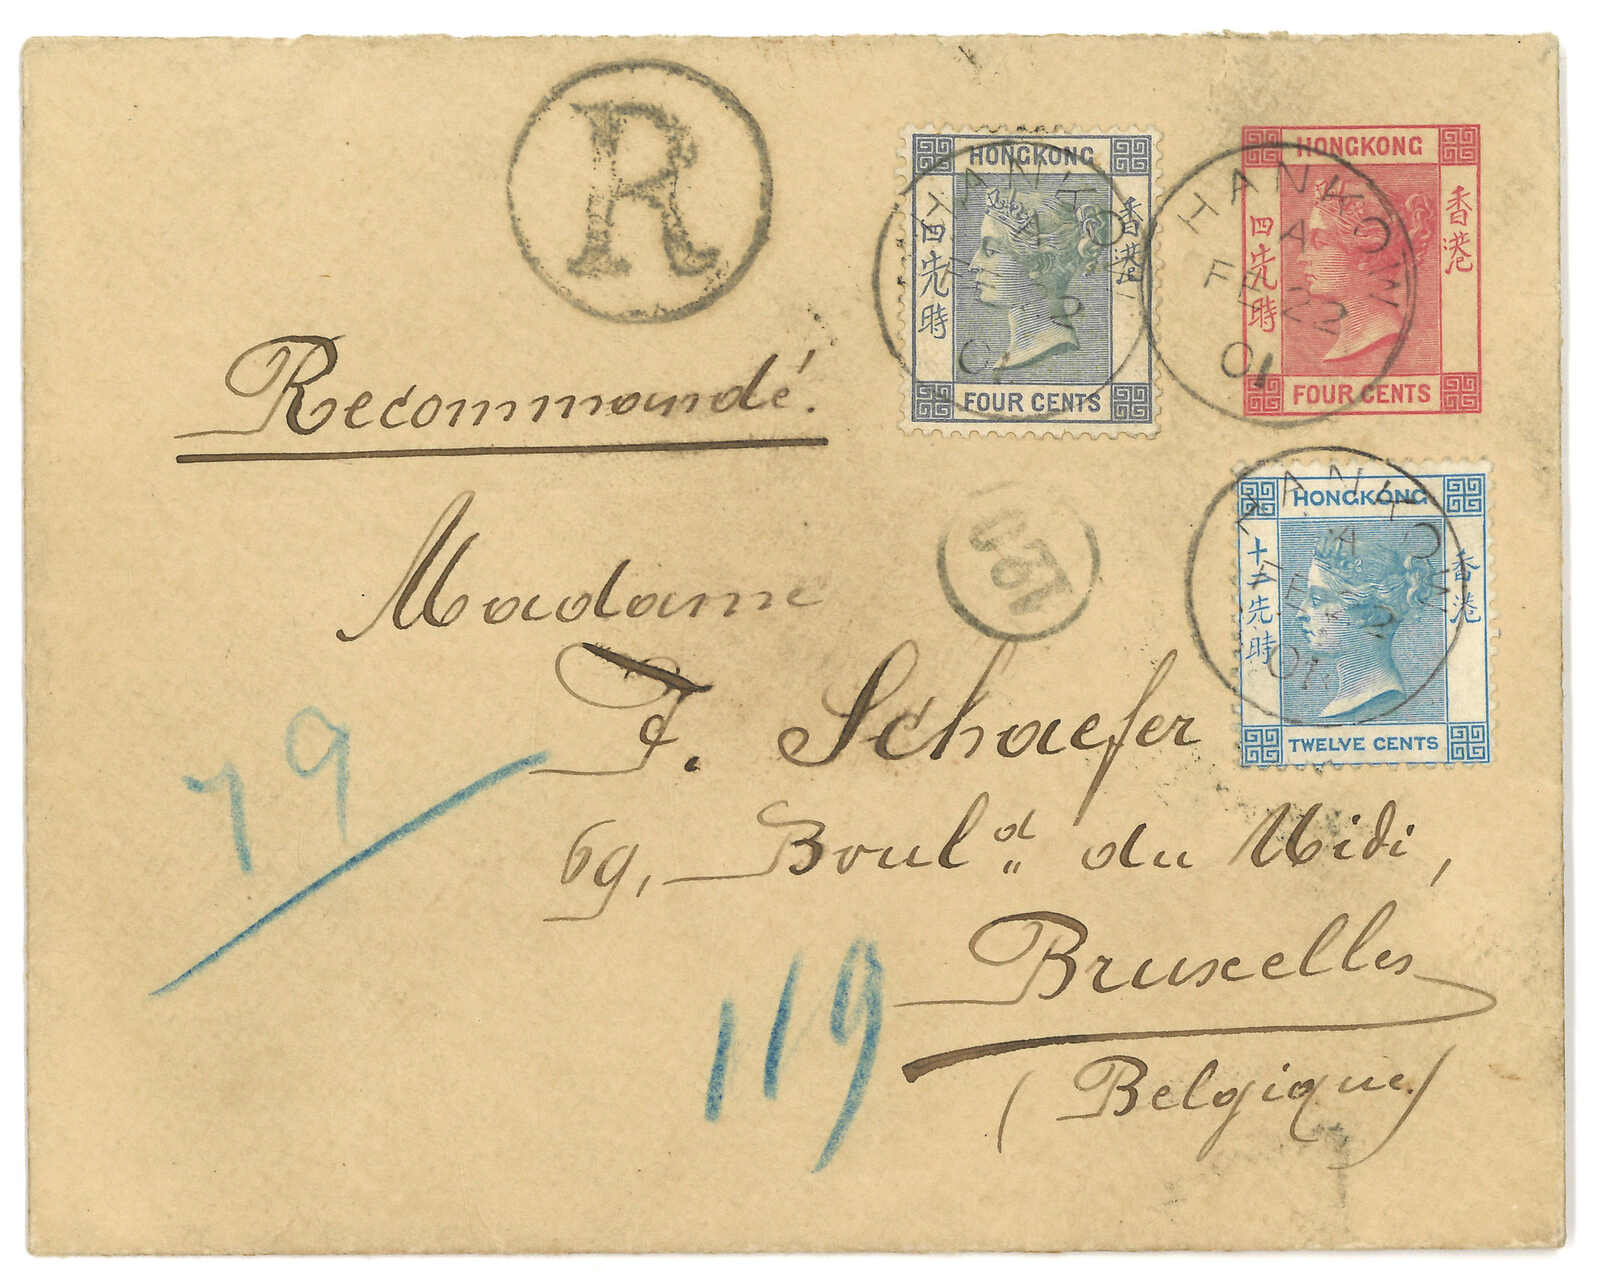 R
HONGKONG
香港
四先時
FOUR CENTS
HANKOW
A
FE 22
01
HONGKONG
香港
四先時
FOUR CENTS
HANKOW
A
FE 22
01
Recommandé.
HONGKONG
香港
十二先時
TWELVE CENTS
HANKOW
A
FE 22
01
Madame
F. Schaefer
69, Boul.d du Midi,
Bruxelles
(Belgique)
79
119